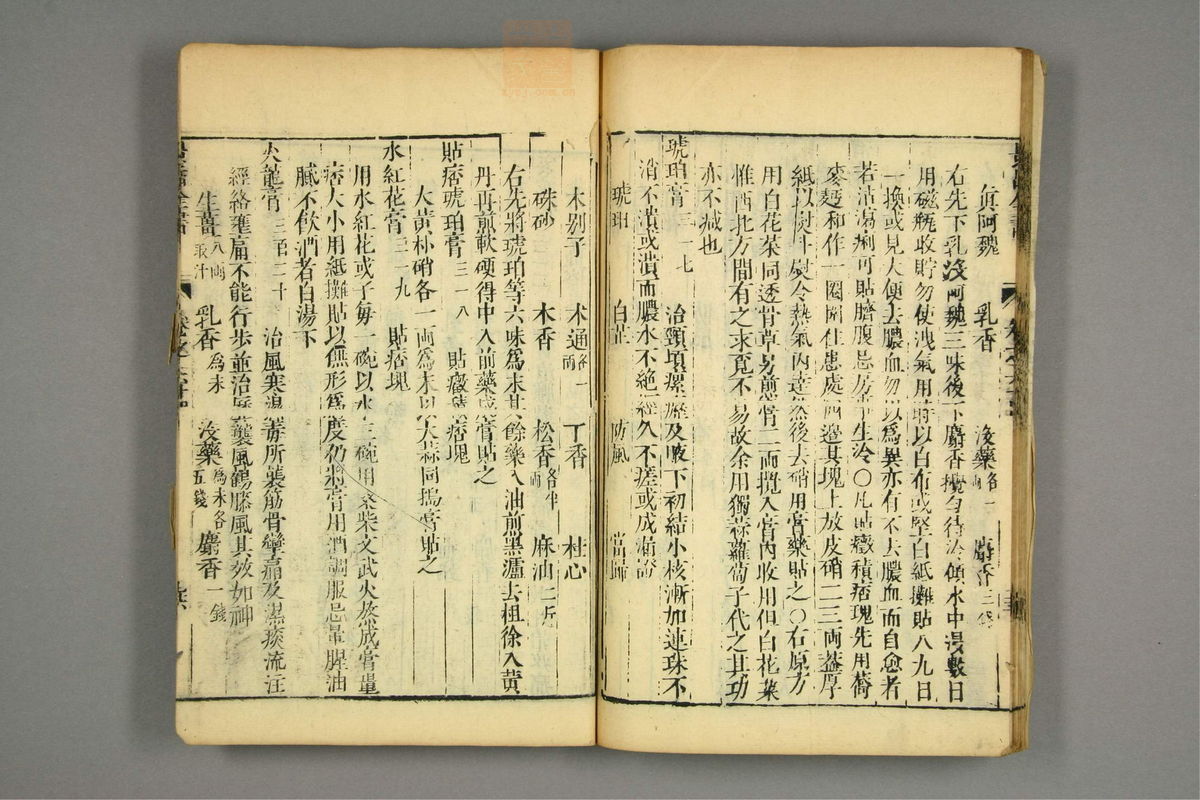 真阿魏 乳香 沒藥各一兩 麝香三錢
右先下乳沒阿魏三味後下麝香攪勻待冷傾水中浸數日
用磁瓶收貯勿使洩氣用時以白布或堅白紙攤貼八九日
一換或見大便去膿血勿以為異亦有不去膿血而自愈者
若治瀉痢可貼臍腹忌房事生冷〇凡貼癥積痞塊先用蕎
麥麫和作一圈圍住患處四邊其塊上放皮硝二三兩蓋厚
紙以熨斗熨令熱氣內達然後去硝用膏藥貼之〇右原方
用白花菜同透骨草另煎膏二兩攪入膏內收用但白花菜
惟西北方間有之求覓不易故余用獨蒜蘿蔔子代之其功
亦不減也
琥珀膏 三一七 治頸項瘰癧及腋下初結小核漸加連珠不
消不潰或潰而膿水不絕經久不瘥或成漏證
琥珀 白芷 防風 當歸
木別子 木通各一兩 丁香 桂心
硃砂 木香 松香各半兩 麻油二斤
右先將琥珀等六味為末其餘藥入油煎黑濾去柤徐入黃
丹再煎軟硬得中入前藥成膏貼之
貼痞琥珀膏 三一八 貼癥積痞塊
大黃朴硝各一兩為末以大蒜同搗膏貼之
水紅花膏 三一九 貼痞塊
用水紅花或子每一碗以水三碗用桑柴文武火熬成膏量
痞大小用紙攤貼以無形為度仍將膏用酒調服忌葷腥油
膩不飲酒者白湯下
火龍膏 三百二十 治風寒濕毒所襲筋骨攣痛及濕痰流注
經絡壅痛不能行步並治歷節風鶴膝風其效如神
生薑八兩取汁 乳香為末 沒藥為末各五錢 麝香一錢